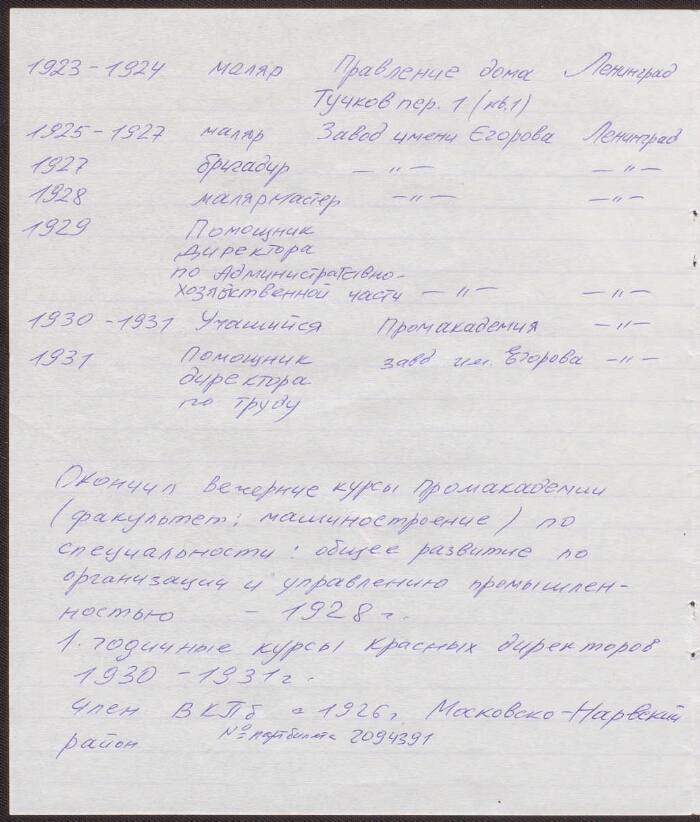 1923 - 1924 маляр Правление дома Ленинград
Тучков пер. 1 (кв.1)
1925 - 1927 маляр Завод имени Егорова Ленинград
1927 бригадир — " — — " —
1928 малярмастер — " — — " —
1929 Помощник
директора
по Административно-
хозяйственной части — " — — " —
1930 - 1931 Учашийся Промакадемия — " —
1931 Помощник завд им. Егорова — " —
директора
по труду
Окончил вечерние курсы Промакадемии
(факультет: машиностроение) по
специальности: общее развитие по
организации и управлению промышлен-
ностью - 1928 г.
1. годичные курсы красных директоров
1930 - 1931 г.
член ВКПб с 1926 г. Московско-Нарвский
район № партбилета 2094391